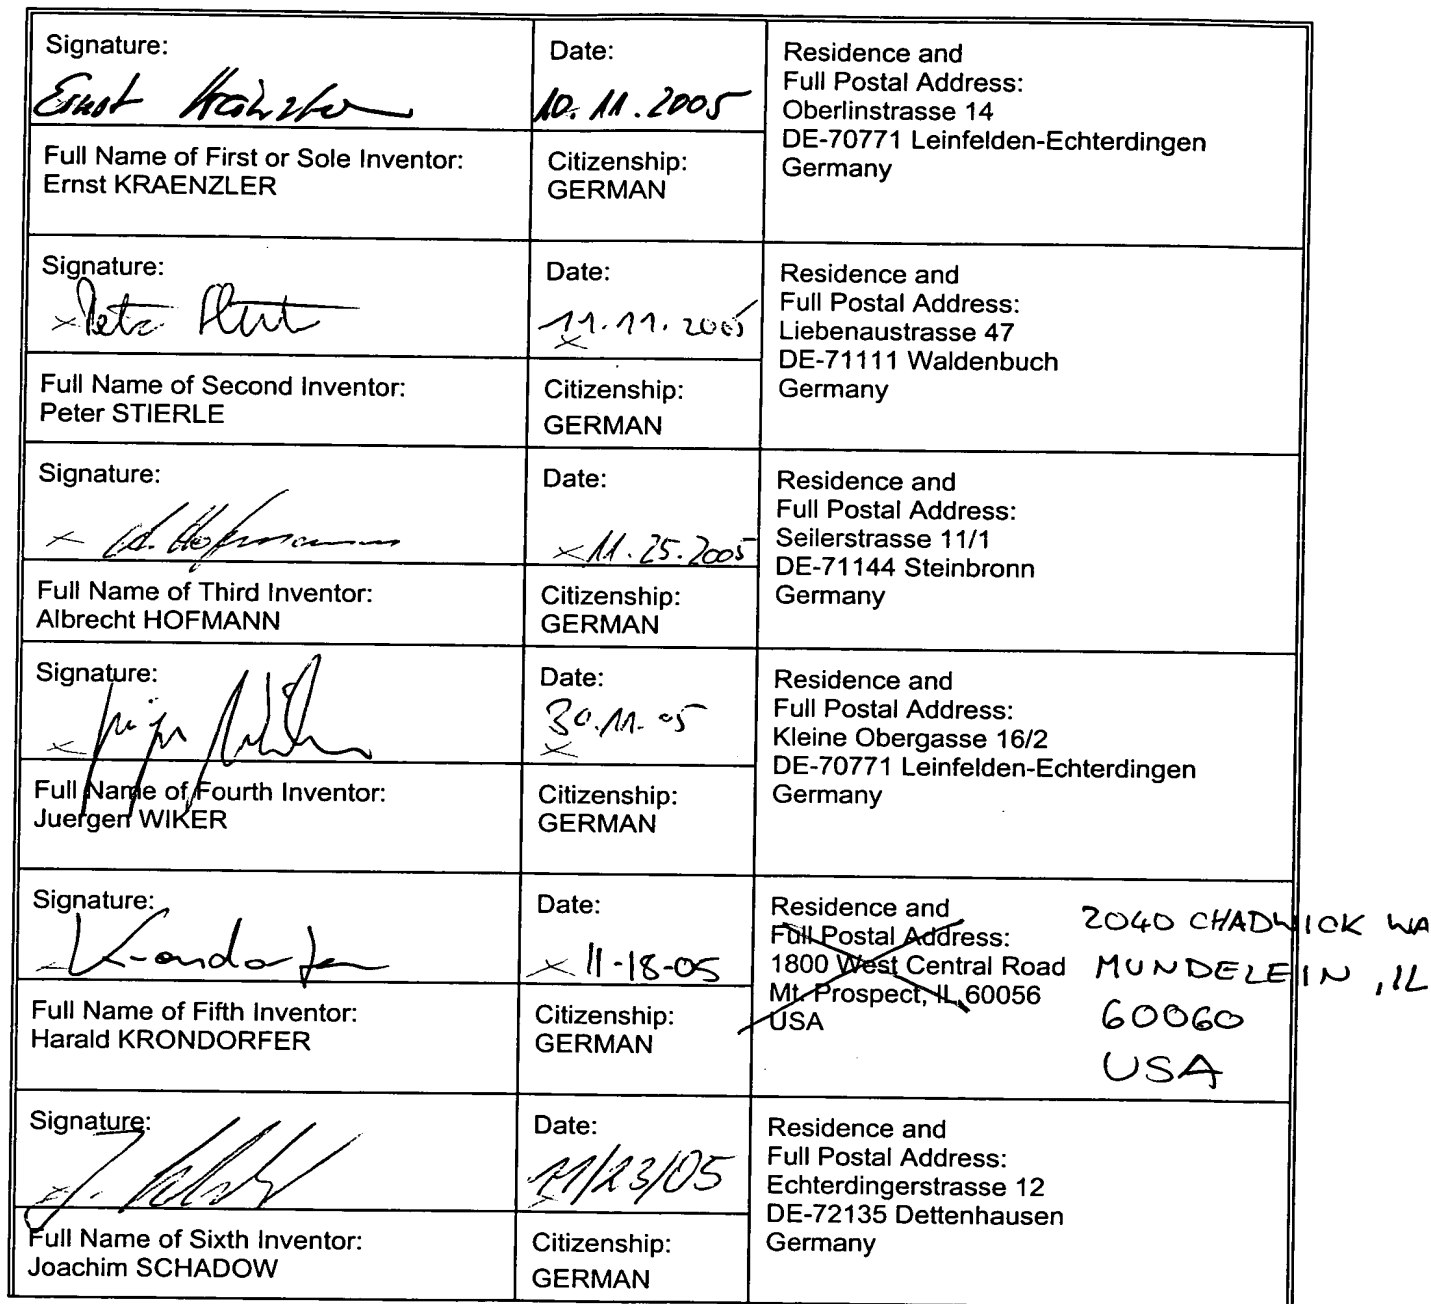 Signature:
Ernst Kraenzler
Date:
10.11.2005
Residence and
Full Postal Address:
Oberlinstrasse 14
DE-70771 Leinfelden-Echterdingen
Germany
Full Name of First or Sole Inventor:
Ernst KRAENZLER
Citizenship:
GERMAN
Signature:
Date:
x Peter
11.11.2005
x
Residence and
Full Postal Address:
Liebenaustrasse 47
DE-71111 Waldenbuch
Germany
Full Name of Second Inventor:
Peter STIERLE
Citizenship:
GERMAN
Signature:
x A. Hofmann
Date:
x 11.25.2005
Residence and
Full Postal Address:
Seilerstrasse 11/1
DE-71144 Steinbronn
Germany
Full Name of Third Inventor:
Albrecht HOFMANN
Citizenship:
GERMAN
Signature:
x
Date:
30.11.05
x
Residence and
Full Postal Address:
Kleine Obergasse 16/2
DE-70771 Leinfelden-Echterdingen
Germany
Full Name of Fourth Inventor:
Juergen WIKER
Citizenship:
GERMAN
Signature:
x Krondorfer
Date:
x 11-18-05
Residence and
Full Postal Address:
1800 West Central Road
Mt. Prospect, IL 60056
USA
2040 CHADWICK WA
MUNDELEIN, IL
60060
USA
Full Name of Fifth Inventor:
Harald KRONDORFER
Citizenship:
GERMAN
Signature:
x J.
Date:
11/23/05
x
Residence and
Full Postal Address:
Echterdingerstrasse 12
DE-72135 Dettenhausen
Germany
Full Name of Sixth Inventor:
Joachim SCHADOW
Citizenship:
GERMAN